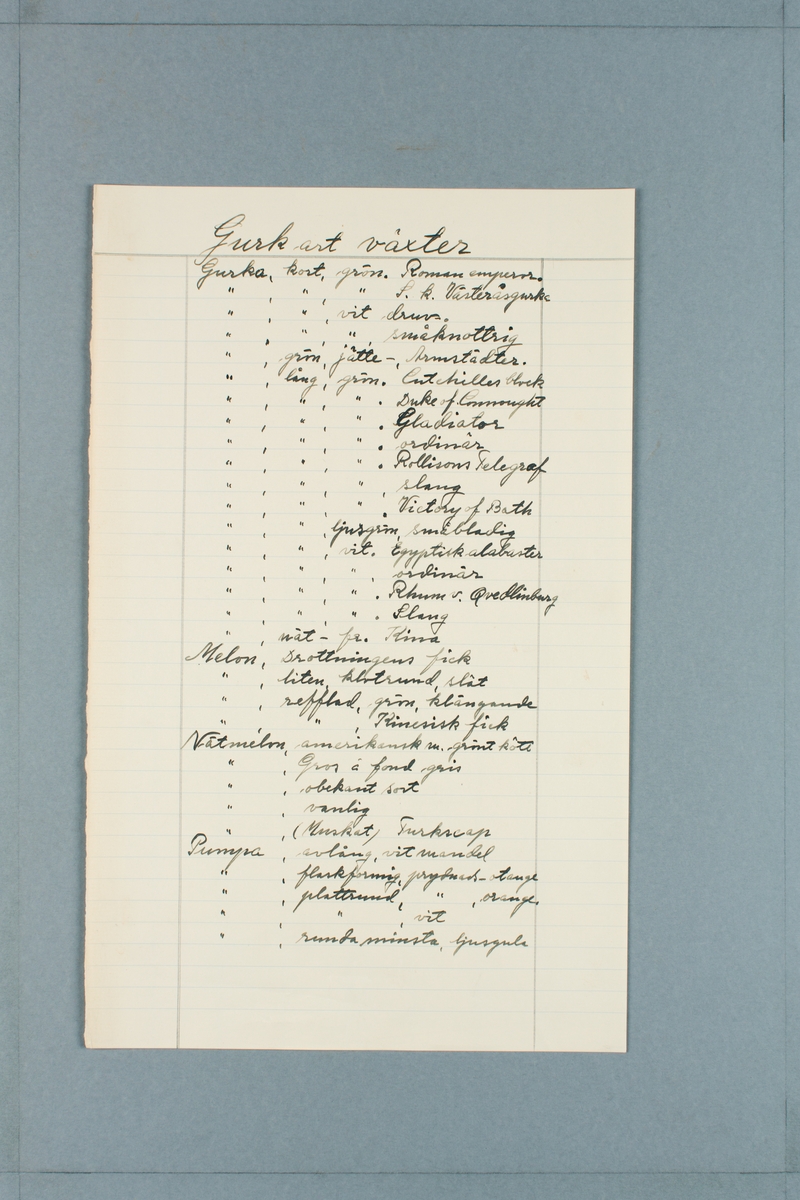 Gurkart växter
Gurka, kort, grön. Roman emperor.
" , " , " S. k. Västeråsgurka
" , " , vit druv-.
" , " , " , småknottrig
" , grön, jätte-, Armstädter.
" , lång, grön. Cutchilles block
" , " , " . Duke of Connought
" , " , " . Gladiator
" , " , " . ordinär
" , " , " . Rollisons Telegraf
" , " , " , slang
" , " , " . Victory of Bath
" , " , ljusgrön, småbladig
" , " , vit. Egyptisk alabaster
" , " , " , ordinär
" , " , " . Rhum v. Qvedlinburg
" , " , " . Slang
" , nät- fr. Kina
Melon, Drottningens fick
" , liten, klotrund, slät
" , refflad, grön, klängande
" " , Kinesisk fick
Vätmelon, amerikansk m. grönt kött
" , Gros à fond gris
" , obekant sort
" , vanlig
" , (Muskat) Turkscap
Pumpa , avlång, vit mandel
" , flaskformig, prydnads- orange
" , plattrund, " , orange.
" , " , vit
" , runda minsta, ljusgula